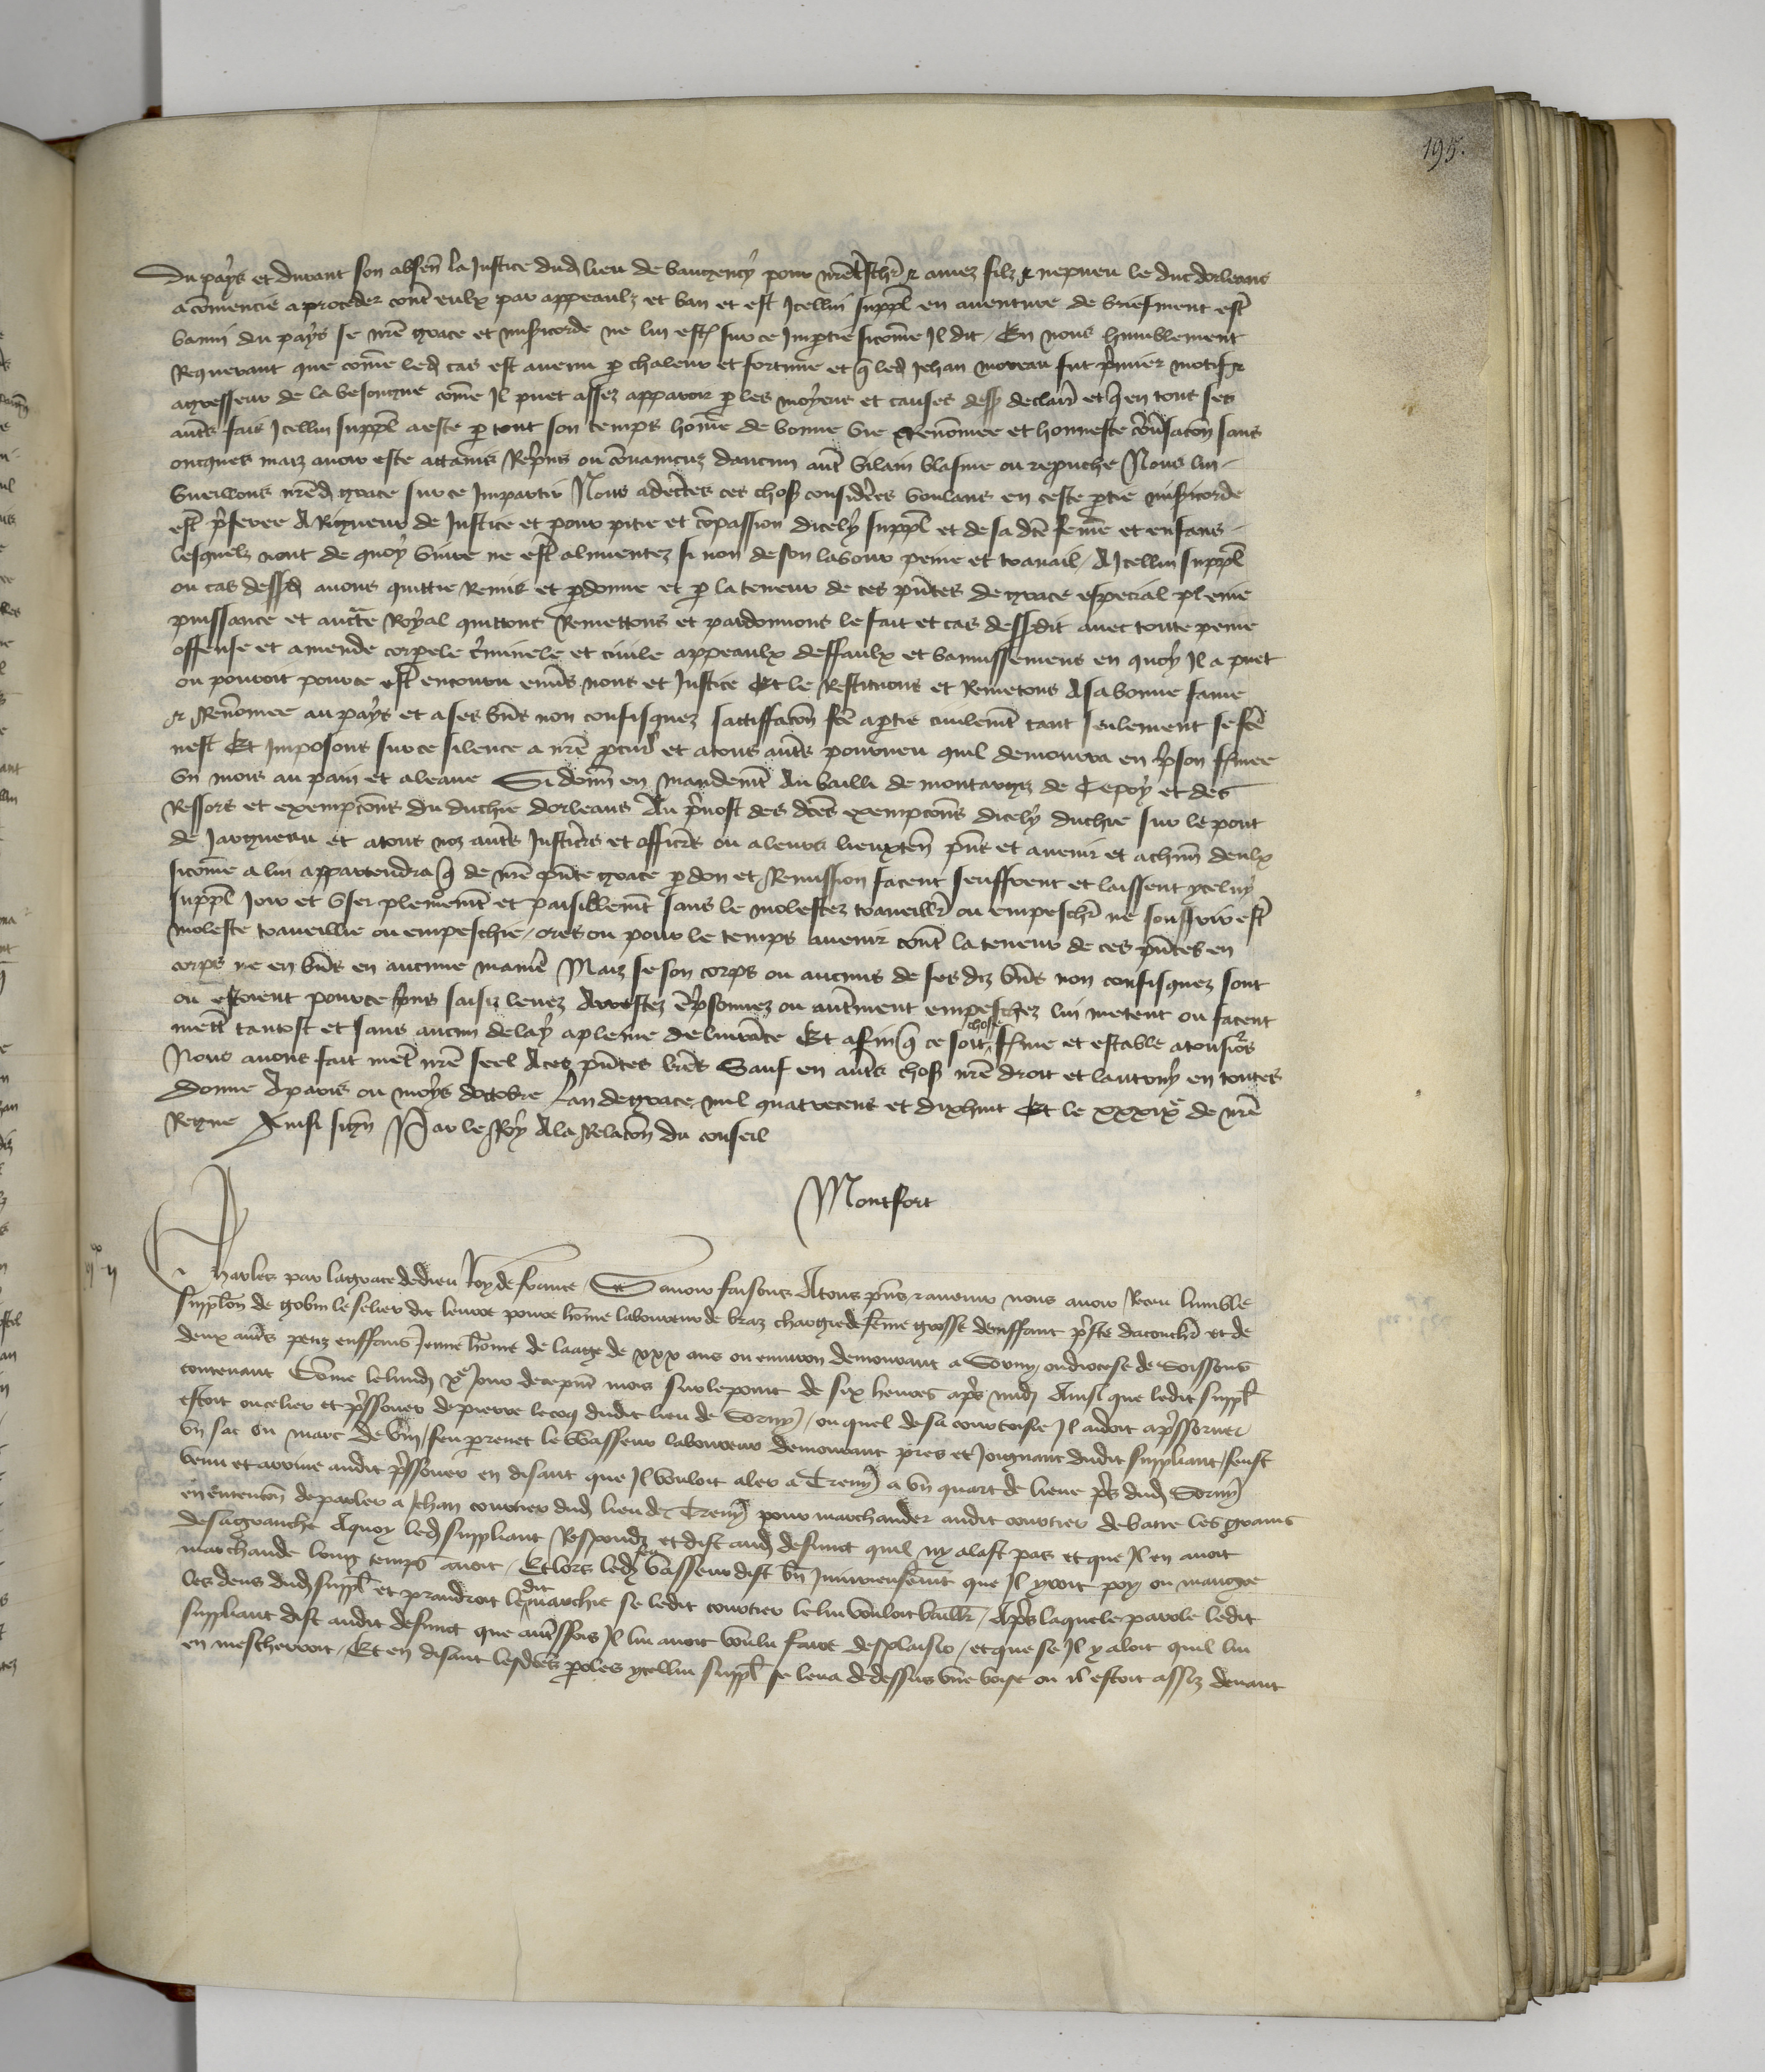 195.
Du pays et durant son absen la Justice dud lieu de baugency pour nre treschr & amez filz & nepueu le duc dorleans
a comencie a proceder cont eulx par appeaulz et ban et est Icellui suppl en auenture de briefment estr
banni du pays se nre grace et misicorde ne lui est sur ce Impartie sicome Il dit / En nous humblement
Requerant que come led cas est auenu p chaleur et fortune et q led Jehan moreau fut pmier motif &
agresseur de la besongne come Il puet assez apparoir p les moyens et causes dess declair et q en tous ses
auts fais Icellui suppl a este p tout son temps home de bonne vie Renomee et honneste conusacon sans
oncques maiz auoir este attains Repris ou conuaincuz daucun aut vilain blasme ou reprouche Nous lui
vueillons nred grace sur ce Impartir Nous adcetes ces chos considerees voulans en ceste ptie misicorde
est pferee A Rigueur de Justice et pour pitie et compassion dicely suppl et de sa dce feme et enfans
lesquelz nont de quoy viure ne estr alimentez si non de son labour peine et trauail / A Icellui suppl
ou cas dessd auons quittie Remis et pdonne et p la teneur de ces pntes de grace especial pleine
puissance et aucte Royal quittons Remettons et pardonnons le fait et cas dessdit auec toute peine
offense et amende corpele criminele et ciuile appeaulx deffaulx et banissemens en quoy Il a puet
ou pouroit pour ce estr encouru enuers nous et Justice Et le Restituons et Remetons A sa bonne fame
& Renomee au pays et a ses biens non confisquez sattiffacon fce a ptie ciuilemt tant seulement se fce
nest Et Imposons sur ce silence a nre pcur et a tous auts pourueu quil demourra en pson fmee
vn mois au pain et a leaue Si donn en mandemt Au bailli de montargiz de Cepoy et des
Ressors et exempcons du duchie dorleans Au puost des dces exempcons dicely duchie sur le pont
de Jargueau et a tous noz auts Justicirs et officirs ou a leurs lieuxten pns et auenir et a chun deulx
sicome a lui appartendra q de nre pnte grace pdon et Remission facent seuffrent et laissent ycelui
suppl Joir et vser plenemt et paisiblemt sans le molester trauaillr ou empeschr ne souffrir estr
moleste trauaillie ou empeschie / ores ou pour le temps auenir cont la teneur de ces pntes en
corps ne en biens en aucune maniere Maiz se son corps ou aucuns de ses diz biens non confisquez sont
ou estoient pour ce prins saisiz leuez Arrestez empsonnez ou autment empeschez lui metent ou facent
mett tantost et sans aucun delay a pleine deliurace Et afin q ce soit chose fme et estable a tousiors
Nous auons fait mett nre seel A ces pntes lrs Sauf en auts chos nre droit et lautruy en toutes
Donne A paris ou moys doctobre Lan de grace mil quatrecens et dixhuit Et le xxxixe de nre
Regne Ainsi sign Par le Roy A la Relacon du conseil
Montfort
Charles par la grace de dieu Roy de france / Sauoir faisons A tous pns & auenir nous auoir Receu lumble
supplon de gobin le selier dit poure home laboureur de braz chargie de feme grosse denffant pste dacouchr et de
deux auts petiz enffans Jeune home de laage de xxx ans ou enuiron demourant a Sorny / ou diocese de Soissons
contenant Come le lundj xe Jour de ce pnt mois sur le point de six heures aps midj Ainsi que ledit suppl
estoit ou celier et pssouer de pierre lecoq dudit lieu de Sorny / ou quel de sa courtoisie Il aidoit a pssorner
vn sac ou marc de vin / feu prenet le Vasseur laboureur demourant pres et Joignant dudit suppliant / feust
venu et arriue audit pssouer en disant que Il vouloit aler a Terny a vn quart de lieue ps dud Sorny
en entencon de parler a Jehan courtier dud lieu de Terny pour marchander audit courtier de batre les grains
de sa granche A quoy led suppliant Respondi et dist aud defunct quil ny alast pas et que Il en auoit
marchande long temps auoit / Et lors led feu Vasseur dist bn Iniurieusemt que Il yroit poy ou maugre
les dens dud suppl et prandroit ledit marchie se ledit courtier le lui vouloit baillr / Aps laquele parole ledit
suppliant dist audit defunct que autssfois Il lui auoit voulu faire desplaisir / et que se Il y aloit quil lui
en mescherroit / Et en disant lesdces poles ycellui suppl se leua de dessus vne boise ou il estoit assiz deuant